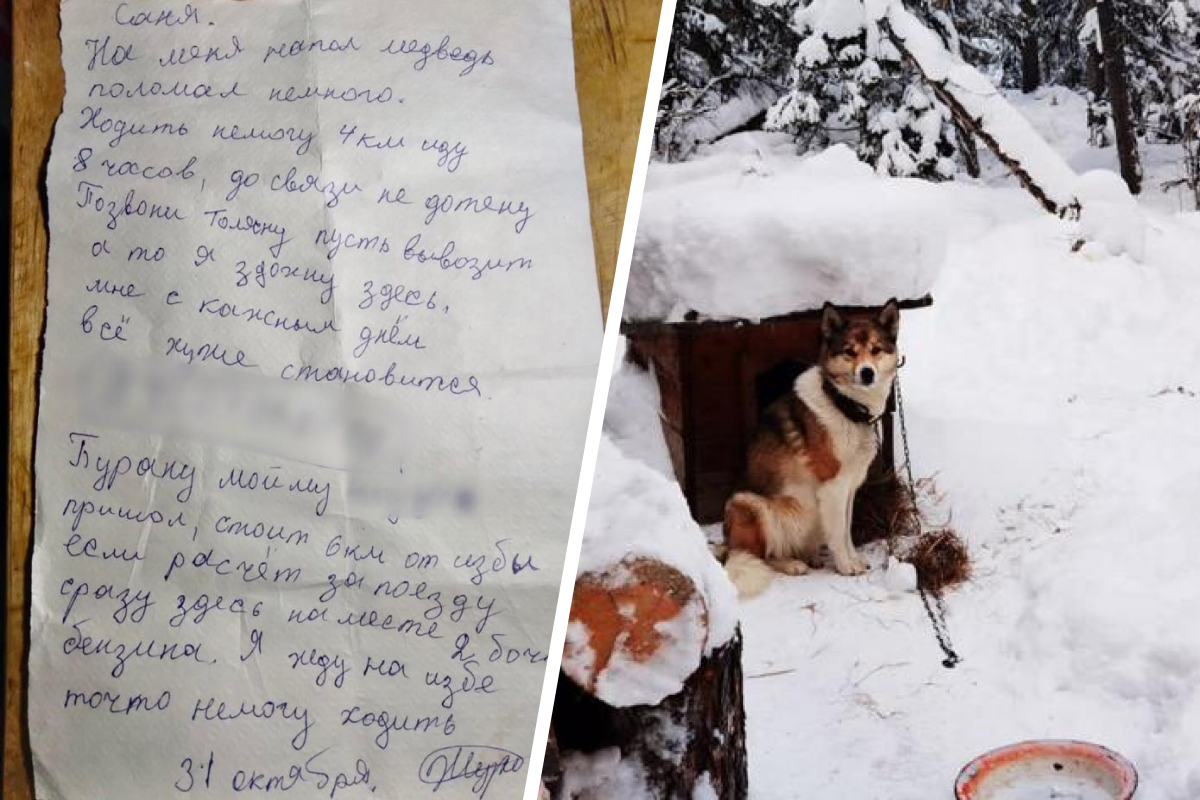 Саня.
На меня напал медведь
поломал немного.
Ходить немогу 4 км иду
8 часов, до связи не дотяну
Позвони Толяну пусть вывозит
а то я здохну здесь,
мне с кажным днём
всё хуже становится.
Бурану мойму
пришол, стоит 6 км от избы
если расчёт за поездку
сразу здесь на месте 2 боч
бензина. Я жду на избе
точто немогу ходить
31 октября.